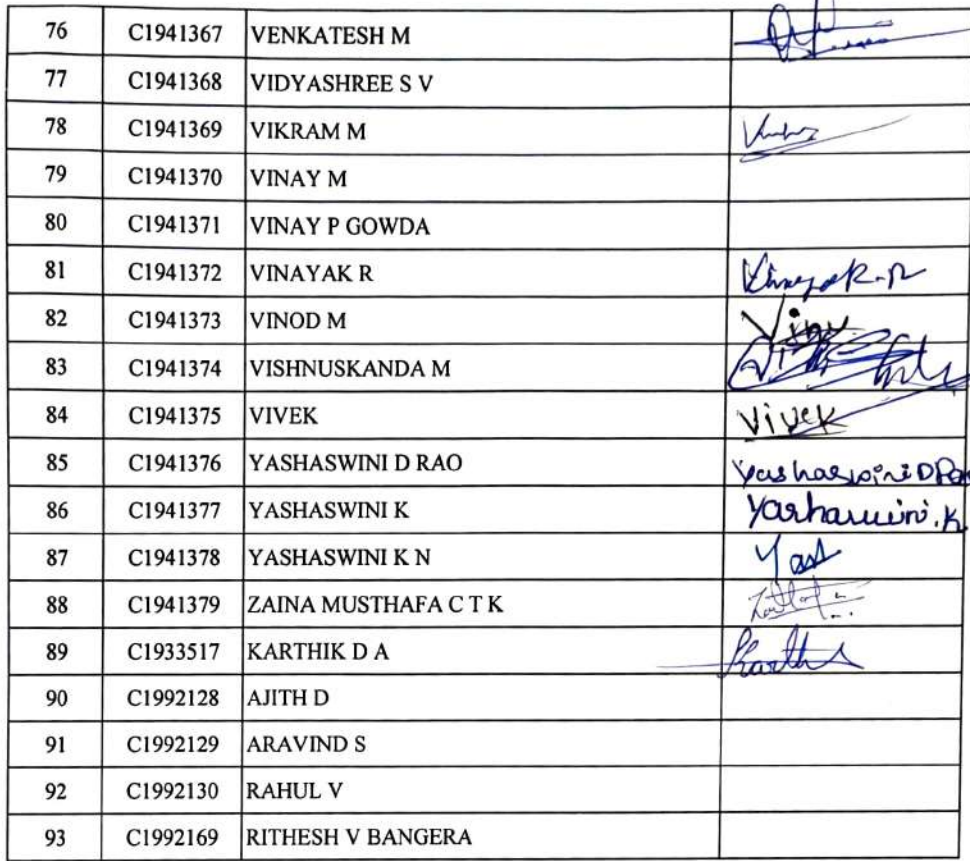 76 C1941367 VENKATESH M
77 C1941368 VIDYASHREE S V
78 C1941369 VIKRAM M
79 C1941370 VINAY M
80 C1941371 VINAY P GOWDA
81 C1941372 VINAYAK R Vinayak.R
82 C1941373 VINOD M Vinu
83 C1941374 VISHNUSKANDA M
84 C1941375 VIVEK Vivek
85 C1941376 YASHASWINI D RAO Yashaswini D Rao
86 C1941377 YASHASWINI K Yashaswini.K
87 C1941378 YASHASWINI K N Yash
88 C1941379 ZAINA MUSTHAFA C T K
89 C1933517 KARTHIK D A
90 C1992128 AJITH D
91 C1992129 ARAVIND S
92 C1992130 RAHUL V
93 C1992169 RITHESH V BANGERA